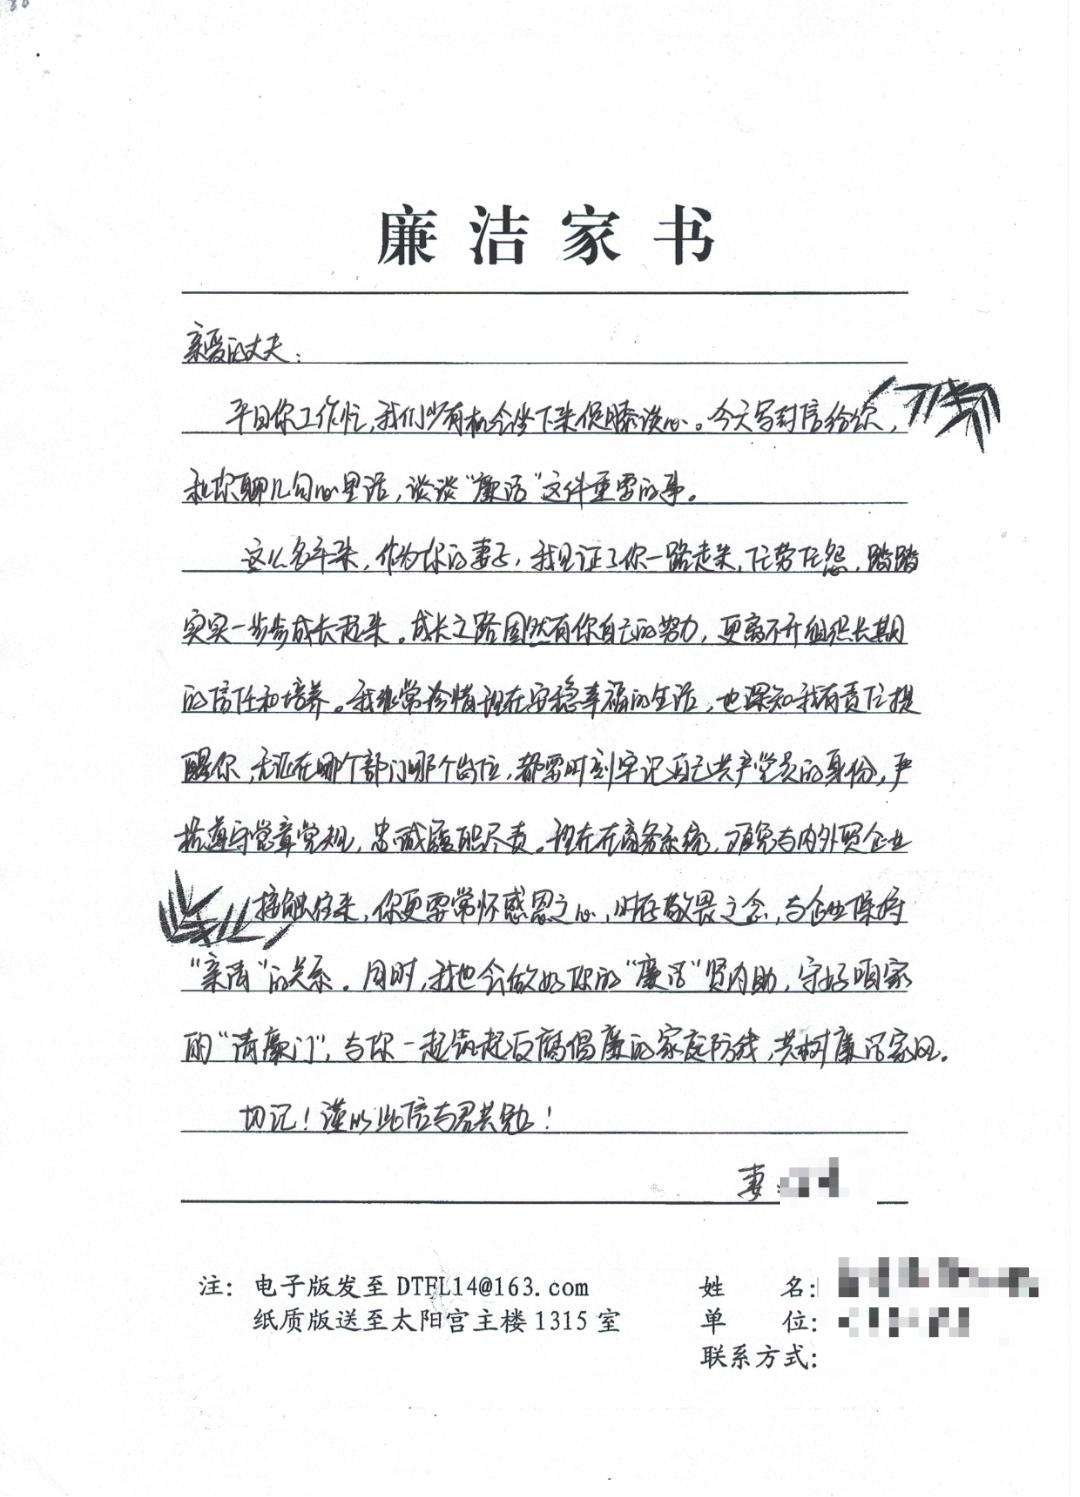 廉洁家书
亲爱的丈夫：
平日你工作忙，我们少有机会坐下来促膝谈心。今天写封信给你，
和你聊几句心里话，谈谈“廉洁”这件重要的事。
这么多年来，作为你的妻子，我见证了你一路走来，任劳任怨，踏踏
实实一步步成长起来。成长之路固然有你自己的努力，更离不开组织长期
的信任和培养。我非常珍惜现在安稳幸福的生活，也深知我有责任提
醒你，无论在哪个部门哪个岗位，都要时刻牢记自己共产党员的身份，严
格遵守党章党规，忠诚履职尽责。现在在商务系统，难免与内外贸企业
接触往来，你更要常怀感恩之心，时在敬畏之念，与企业保持
“亲清”的关系。同时，我也会做好你的“廉洁”贤内助，守好咱家
的“清廉门”，与你一起筑起反腐倡廉的家庭防线，共树廉洁家风。
切记！谨以此信与君共勉！
妻
注：电子版发至 DTFL14@163.com
纸质版送至太阳宫主楼 1315 室
姓 名：
单 位：
联系方式：